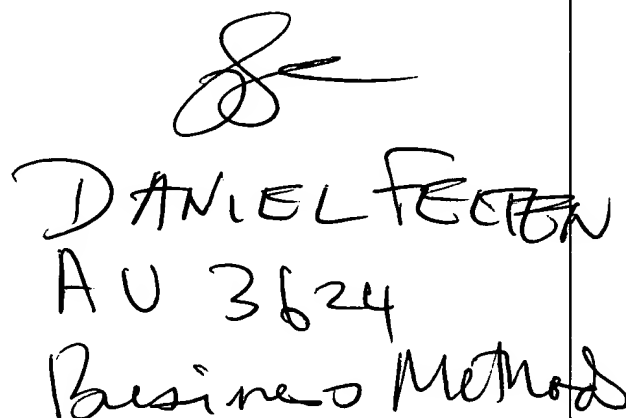 DANIEL FELTEN
AU 3624
Business Methods